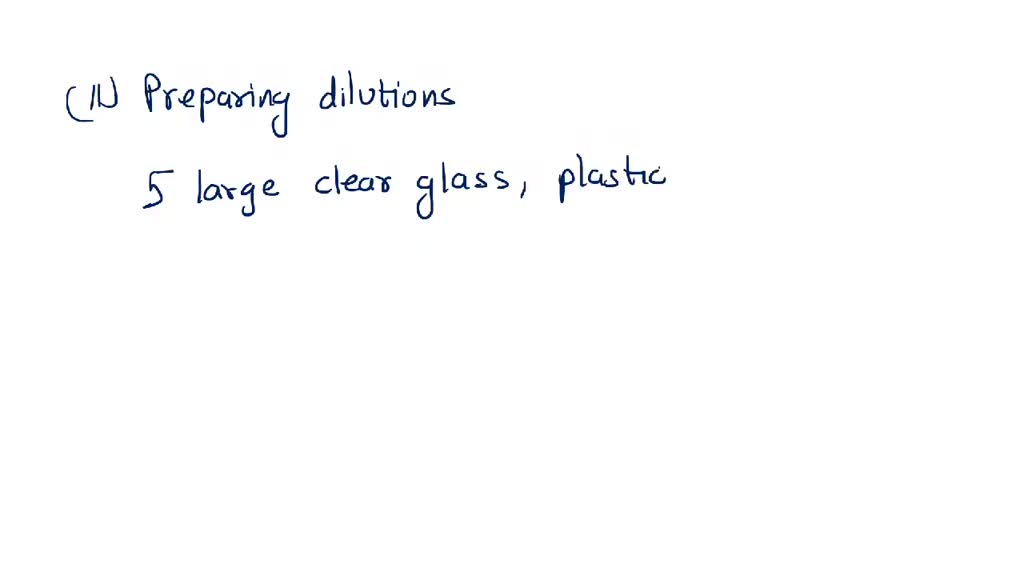 (11) Preparing dilutions
5 large clear glass, plastic